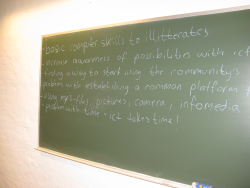 - basic computer skills to illitterates
- increase awareness of possibilities with ict
- finding a way to start using the community's
problem with establishing a common platform
- using mp3-files, pictures, camera, infomedia
- problem with time - ict takes time!